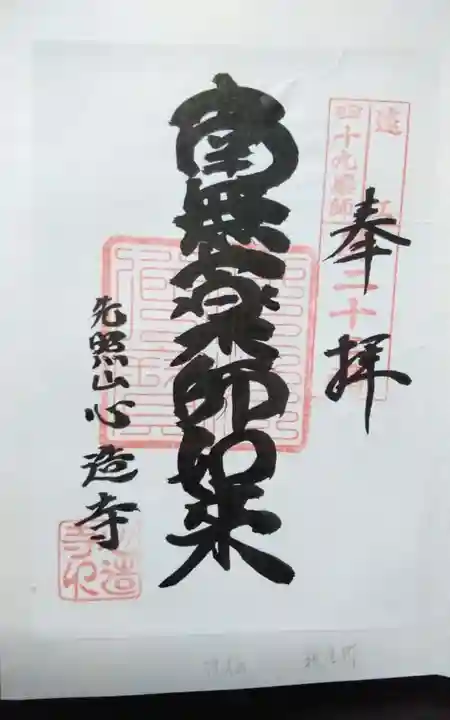 奉拝
遠江
四十九薬師
二十
南無薬師如来
光照山心造寺